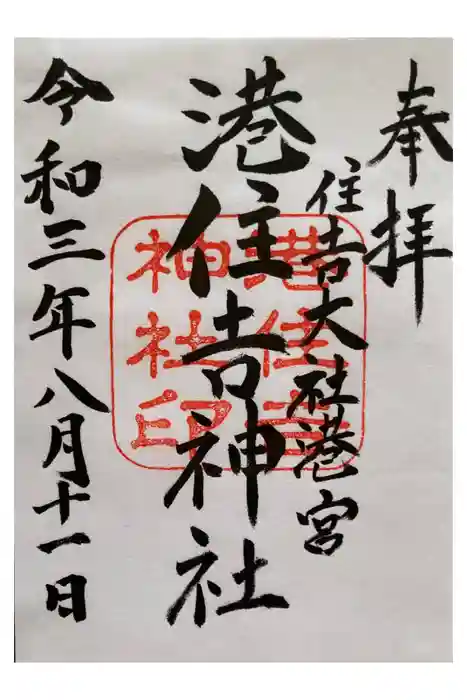 奉拝
住吉大社港宮
港住吉神社
令和三年八月十一日
港住吉
神社印